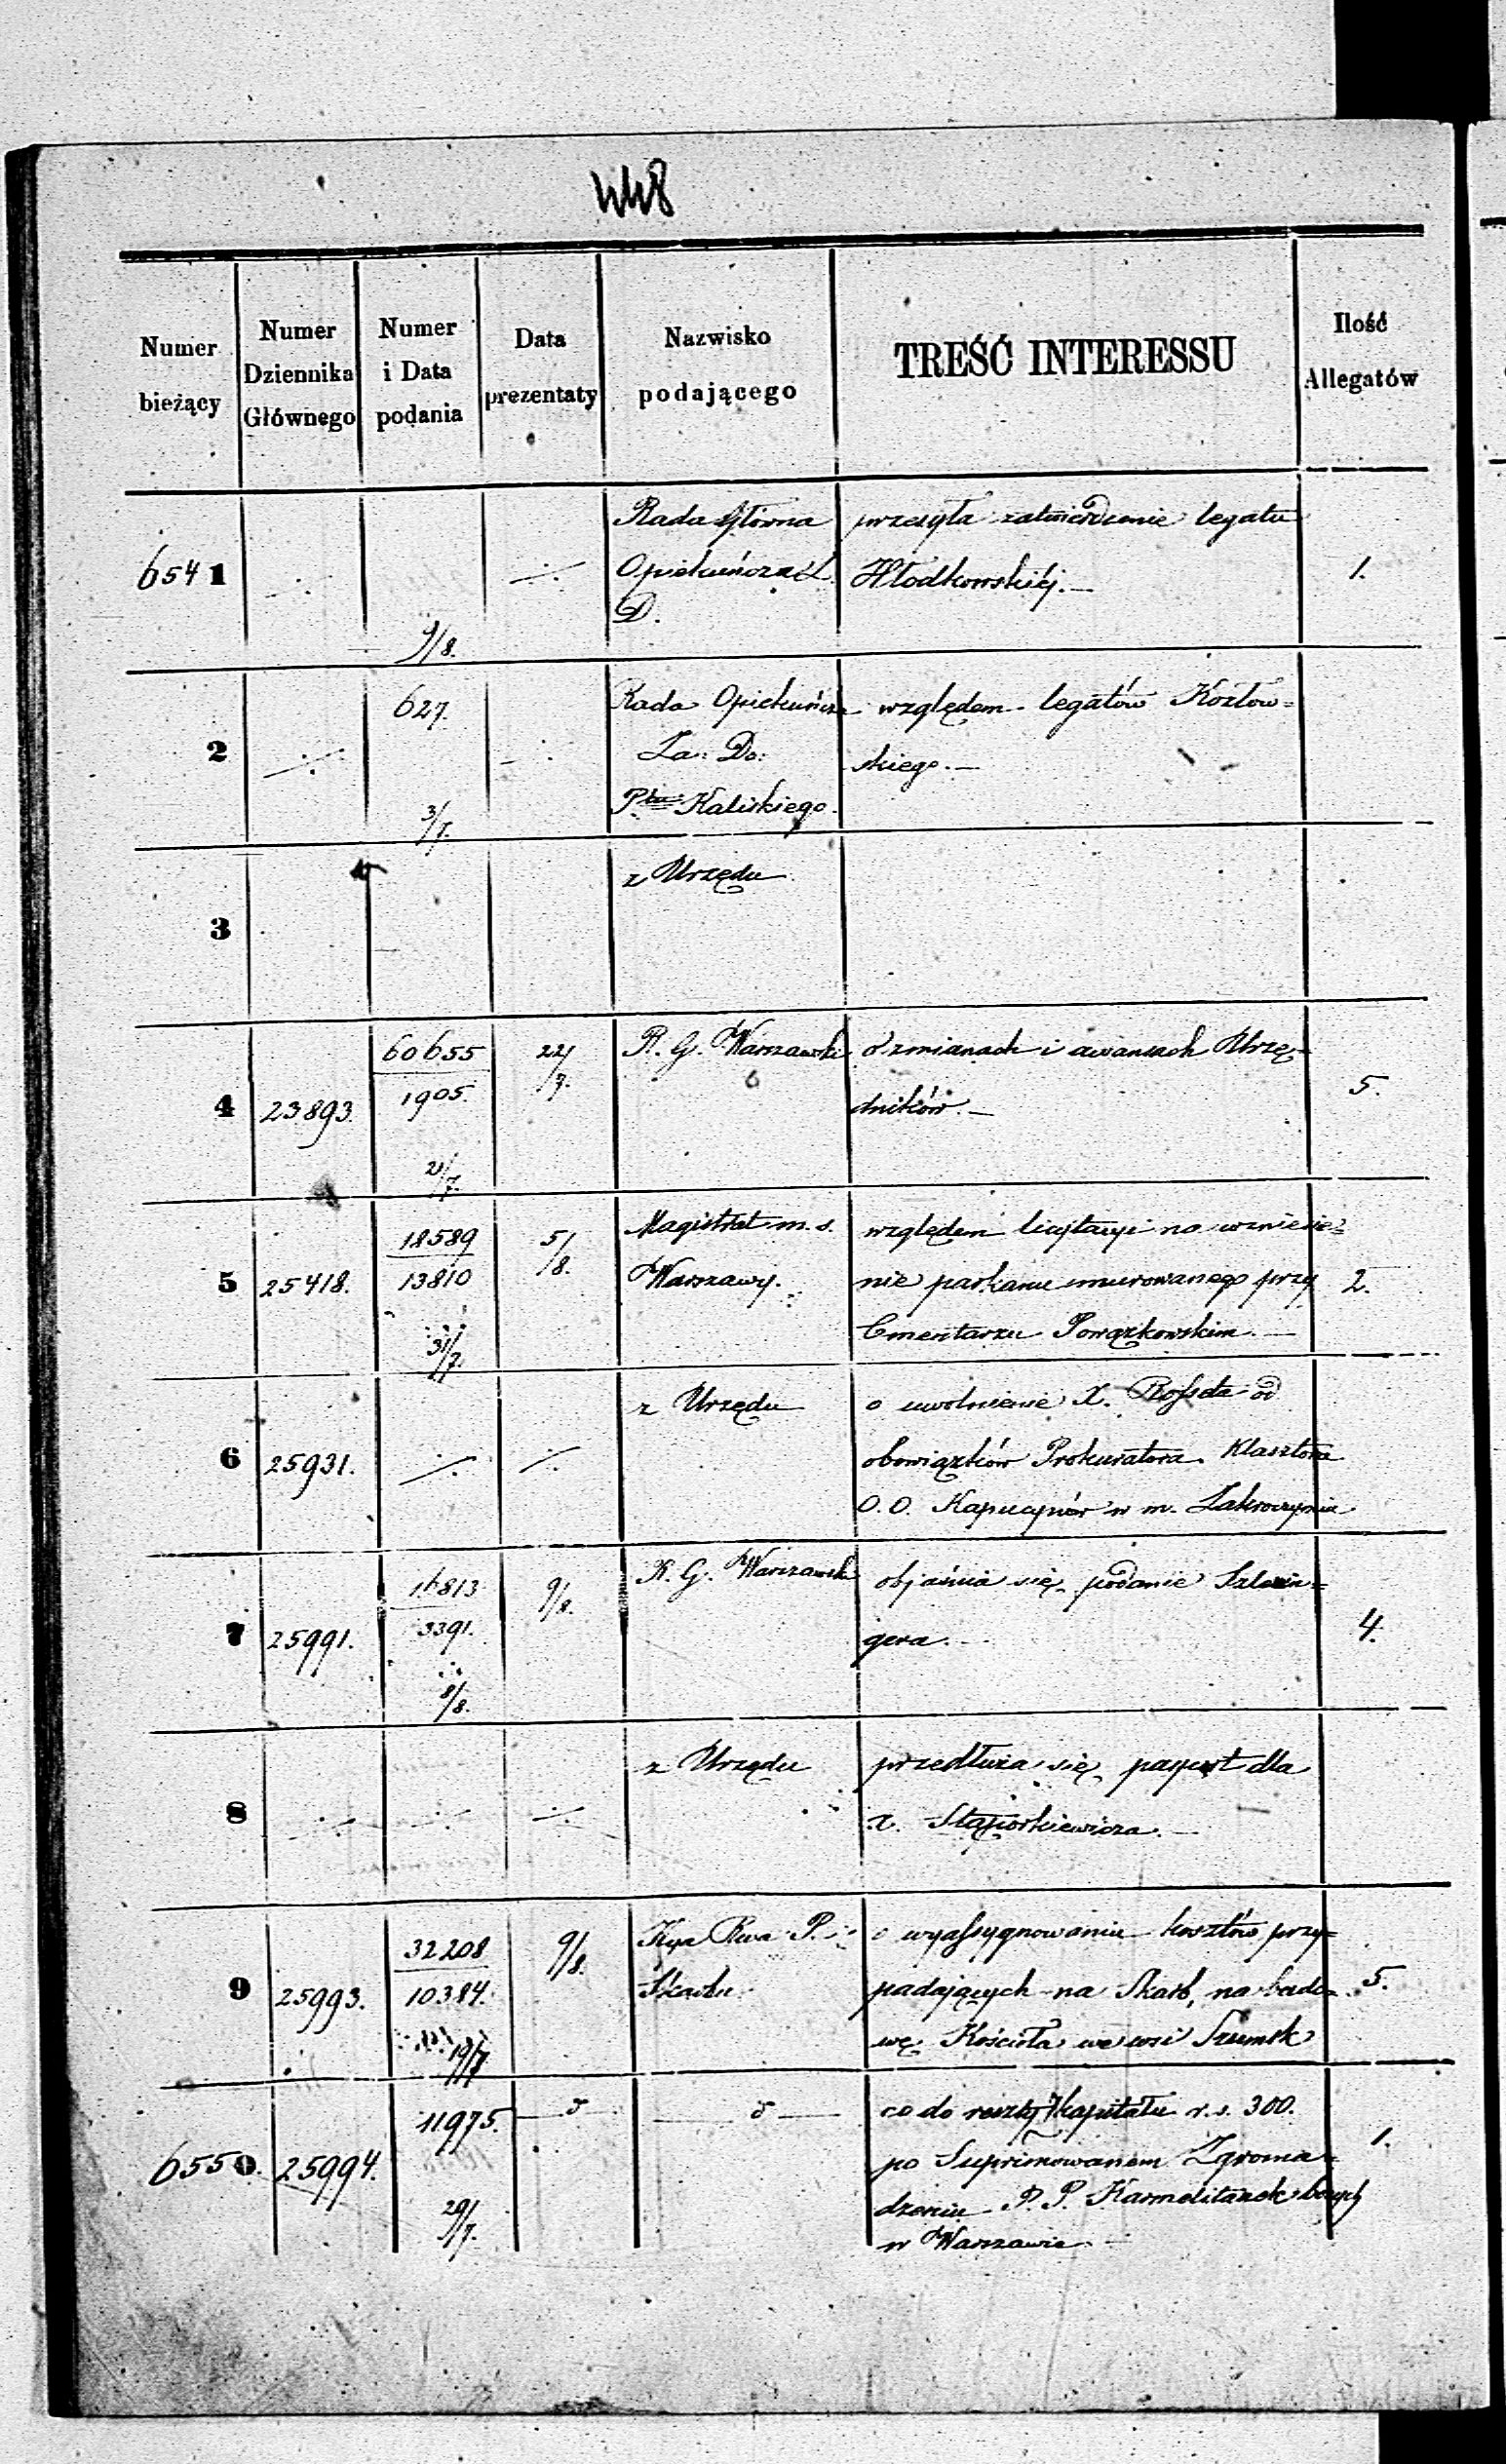 448
Numer bieżący
Numer Dziennika Głównego
Numer i Data podania
Data prezentaty
Nazwisko podającego
TREŚĆ INTERESSU
Ilość Allegatów
6541
9/8.
Rada Główna
Opiekuńcza Z.
D.
przesyła zatwierdzenie legatu
Włodkowskiéj.—
1.
2
627.
3/7.
Rada Opiekuńcza
Za: Do:
Ptu Kaliskiego.
względem legatów Kozłow=
skiego.—
3
z Urzędu
4
23893.
60655
1905.
21/7.
22/7.
R. G. Warszawski
o zmianach i awansach Urzę-
dników.—
5.
5
25418.
18589
13810
31/7.
5/8.
Magistrat m. s.
Warszawy.
względem licytacyi na wzniesie=
nie parkanu murowanego przy
Cmentarzu Powązkowskim.—
2.
6
25931.
z Urzędu
o uwolnienie X. od
obowiązków Prokuratora Klasztora
O. O. Kapucynów w m. Zakroczymiu
7
25991.
16813
3391.
8/8.
9/8.
R. G. Warszawski
objaśnia się podanie Szlezin=
gera.—
4.
8
z Urzędu
przedłuża się paszport dla
x. Stąporkiewicza.—
9
25993.
32208
10384.
19/7
9/8.
Kya Rwa P. i
Skarbu
o wyassygnowanie kosztów przy=
padających na Skarb, na budo=
wę Kościoła we wsi Szumsk
5.
6550.
25994.
11975.
29/7.
— d —
— d —
co do reszty kapitału r. s. 300.
po Suprimowanem Zgroma=
dzeniu P. P. Karmelitanek bosych
w Warszawie.—
1.